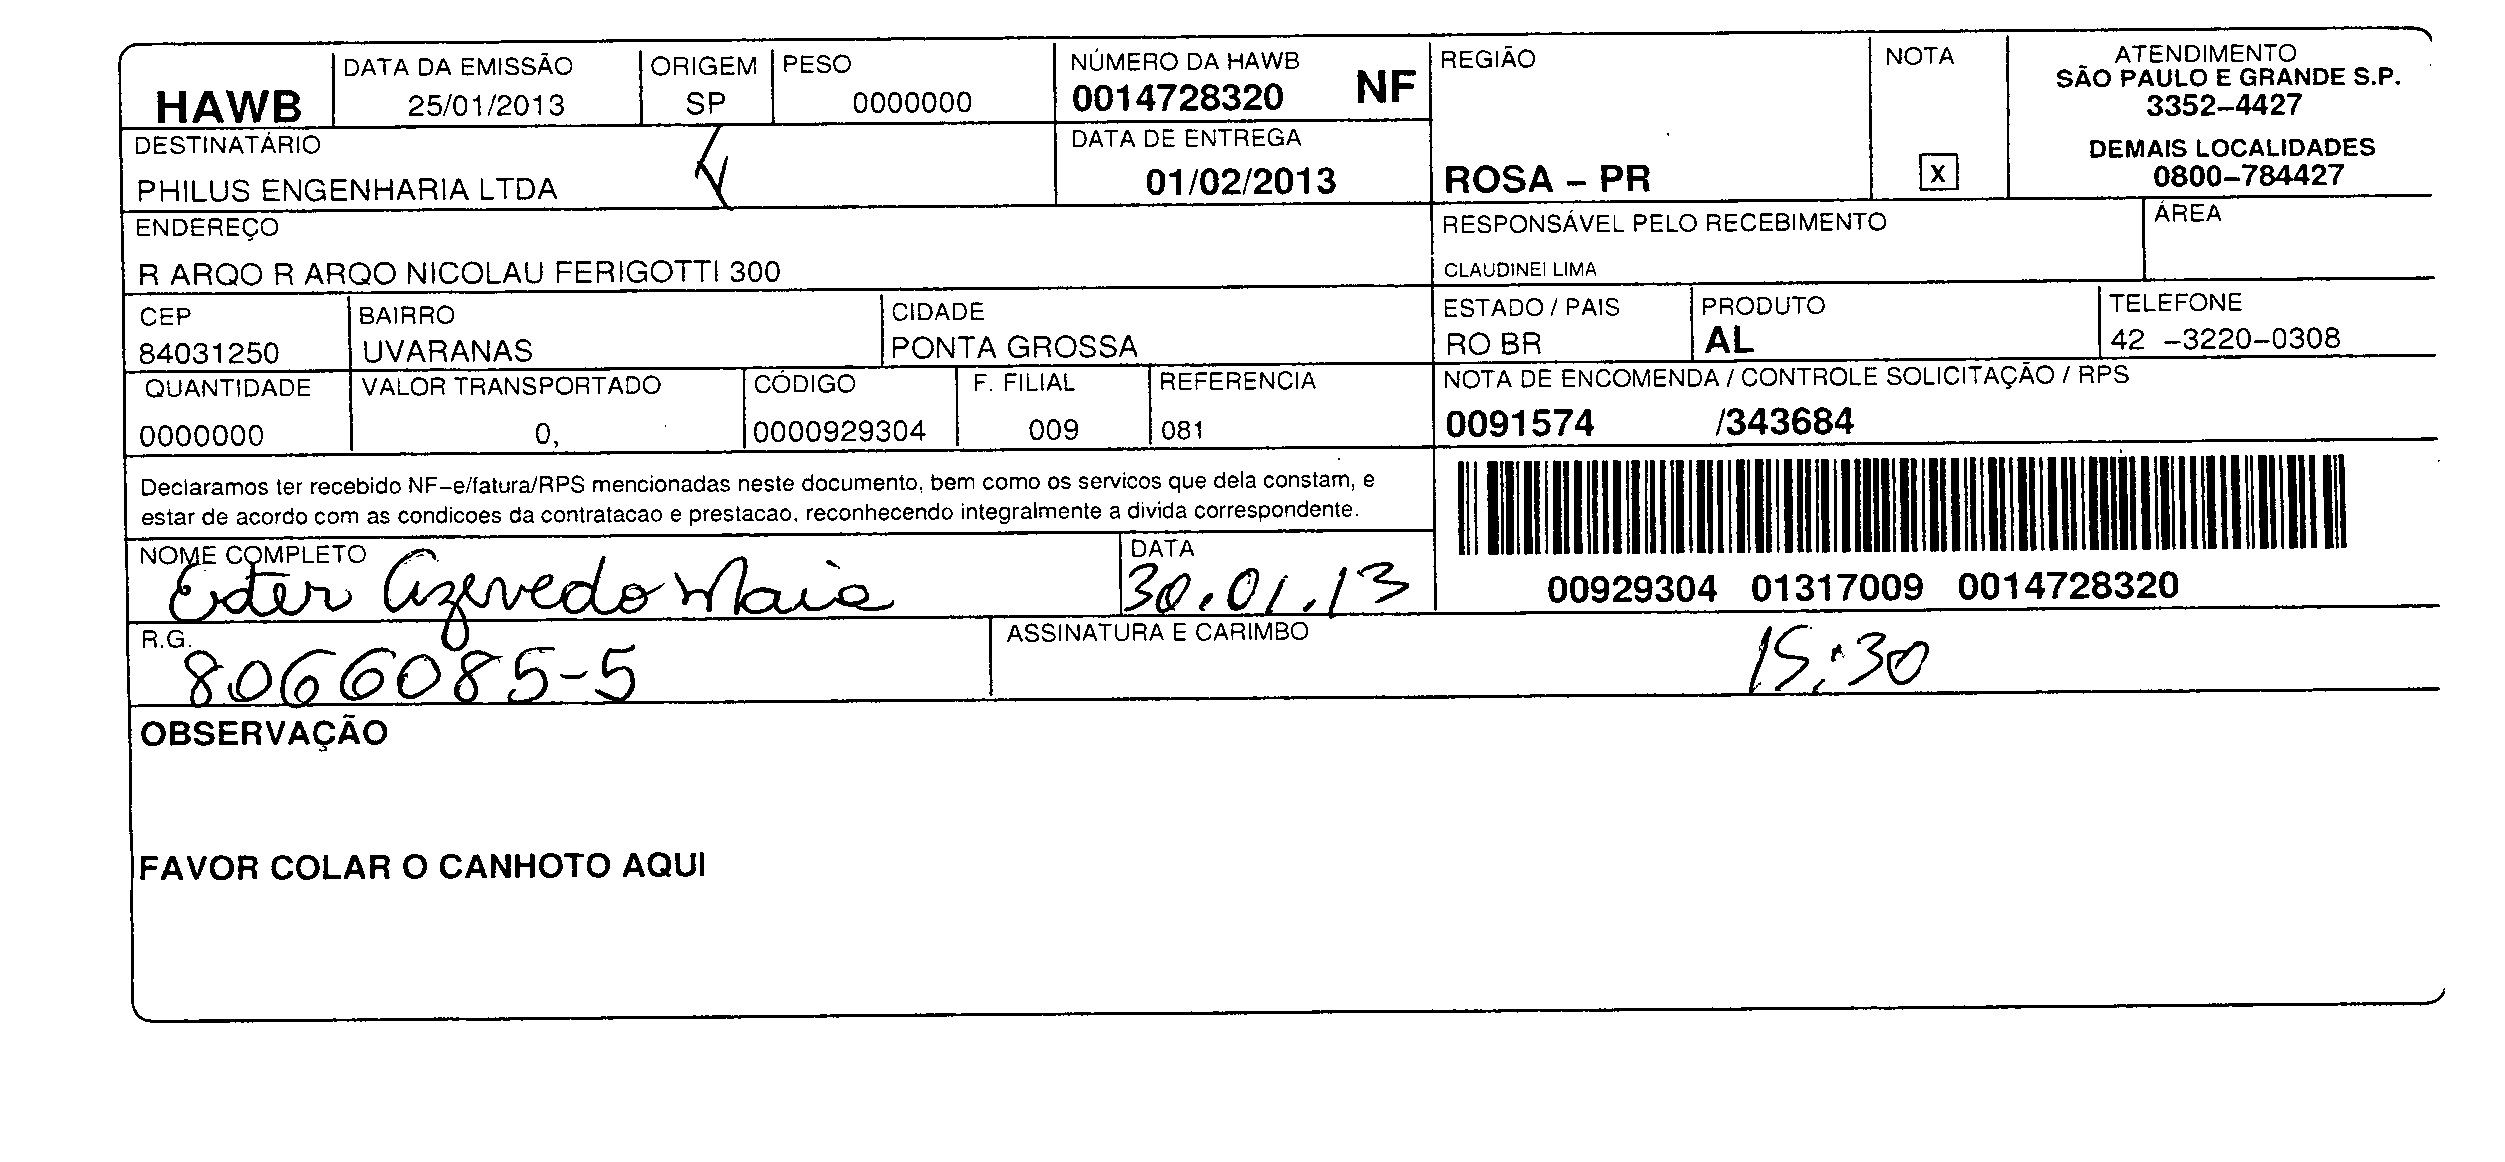 HAWB
DATA DA EMISSÃO
25/01/2013
ORIGEM
SP
PESO
0000000
NÚMERO DA HAWB
0014728320 NF
DATA DE ENTREGA
01/02/2013
REGIÃO
ROSA – PR
NOTA
X
ATENDIMENTO
SÃO PAULO E GRANDE S.P.
3352–4427
DEMAIS LOCALIDADES
0800–784427
DESTINATÁRIO
PHILUS ENGENHARIA LTDA
ENDEREÇO
R ARQO R ARQO NICOLAU FERIGOTTI 300
RESPONSÁVEL PELO RECEBIMENTO
CLAUDINEI LIMA
ÁREA
CEP
84031250
BAIRRO
UVARANAS
CIDADE
PONTA GROSSA
ESTADO / PAIS
RO BR
PRODUTO
AL
TELEFONE
42 –3220–0308
QUANTIDADE
0000000
VALOR TRANSPORTADO
0,
CÓDIGO
0000929304
F. FILIAL
009
REFERENCIA
081
NOTA DE ENCOMENDA / CONTROLE SOLICITAÇÃO / RPS
0091574 /343684
Declaramos ter recebido NF–e/fatura/RPS mencionadas neste documento, bem como os servicos que dela constam, e
estar de acordo com as condicoes da contratacao e prestacao, reconhecendo integralmente a divida correspondente.
00929304 01317009 0014728320
NOME COMPLETO
Ester Azevedo Maia
DATA
30.01.13
R.G.
8066085-5
ASSINATURA E CARIMBO
15:30
OBSERVAÇÃO
FAVOR COLAR O CANHOTO AQUI